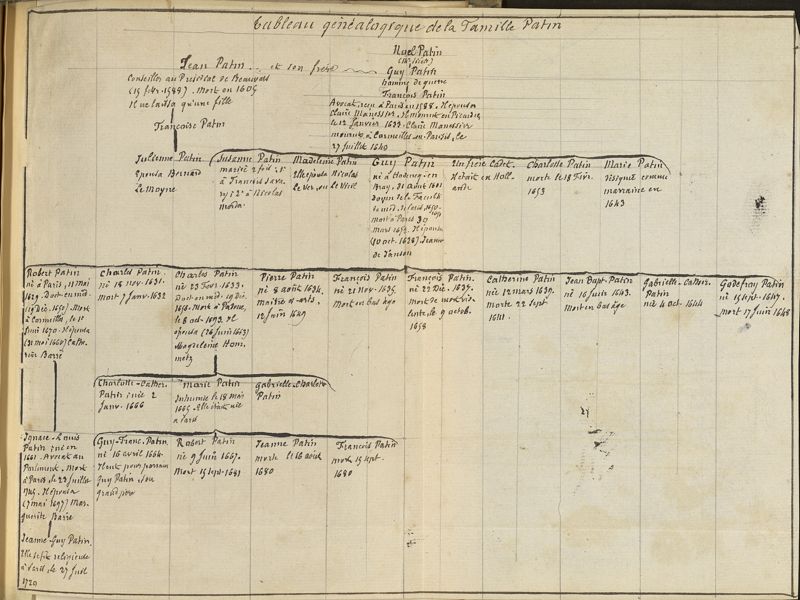 Tableau généalogique de la Famille Patin
Jean Patin .. et son frère
Conseiller au Présidial de Beauvais
(15 févr. 1588). Mort en 1605
Il ne laissa qu'une fille
Françoise Patin
Noel Patin
Guy Patin
homme de guerre
François Patin
Avocat, reçu à Paris en 1588. Il épousa
Claire Manessier.
le 12 janvier 1633. Claire Manessier
mourut à Cormeilles-en-Parisis, le
27 juillet 1640
Julienne Patin
épousa Bernard
Le Moyne
Susanne Patin
mariée 2 fois, 1°
à François
2° à Nicolas
Madeleine Patin
Elle épousa Nicolas
Le Vieil
Guy Patin
né à Hodenc-en
Bray, 31 août 1601
Doyen de la Faculté
de méd.
Mort à Paris 30
Mars 1672. Il épousa
(10 oct. 1628) Jeanne
de Janson
Un frère cadet.
Il était en Holl
ande
Charlotte Patin
morte le 18 Févr.
1653
Marie Patin
désignée comme
marraine en
1643
Robert Patin
né à Paris, 11 mai
1629. Doct. en méd.
(19 Déc. 1650). Mort
à Cormeilles, le 1er
Juin 1670. Il épousa
(31 mai 1660) Cathe-
rine Barré
Charles Patin.
né 18 nov. 1631.
Mort 7 Janv. 1632
Charles Patin
né 23 Févr. 1633.
Doct. en méd. 19 Déc.
1656. Mort à Padoue,
le 8 oct. 1693. Il
épousa (26 juin 1663)
Magdeleine Hom-
metz
Pierre Patin
né 8 août 1634.
maître ès-arts.
12 juin 1649
François Patin
né 21 Nov. 1635.
Mort en bas âge
François Patin.
né 22 Déc. 1637.
Mort de mort vio-
lente, le 9 octob.
1658
Catherine Patin
née 12 mars 1639.
Morte 22 sept
1641.
Jean Bapt. Patin
né 16 Juin 1643.
Mort en bas âge
Gabrielle-Cather.
Patin
née 4 Oct. 1644
Godefroy Patin
né 15 sept. 1647.
Mort 17 Juin 1648
Charlotte-Cather.
Patin, née 2
Janv. 1666
Marie Patin
Inhumée le 18 mai
1665. Elle était née
à Paris
Gabrielle-Charlotte
Patin
Ignace-Louis
Patin, né en
1661. Avocat au
Parlement. Mort
à Paris, le 23 juillet
Il épousa
(7 mai 1697) Mar-
guerite Barré
Guy-Franc. Patin
né 16 avril 1664.
Il eut pour parrain
Guy Patin, son
grand père
Robert Patin
né 9 Juin 1667.
Mort 15 sept. 1681
Jeanne Patin
morte le 16 août
1680
François Patin
mort 15 sept.
1680
Jeanne-Guy Patin.
Elle se fit religieuse
à Paris, le 27 Juil
1720